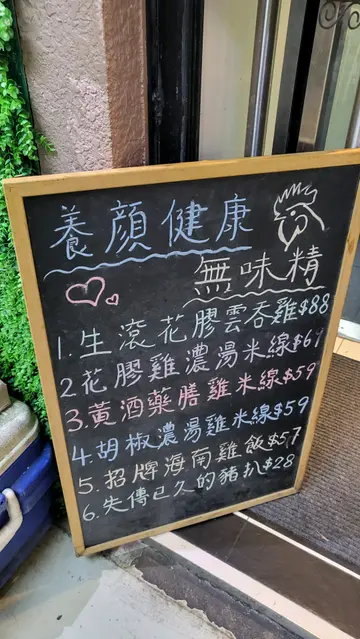 養顏健康
無味精
1. 生滾花膠雲吞雞$88
2 花膠雞濃湯米線$69
3. 黃酒藥膳雞米線$59
4. 胡椒濃湯雞米線$59
5. 招牌海南雞飯$57
6. 失傳已久的豬扒$28